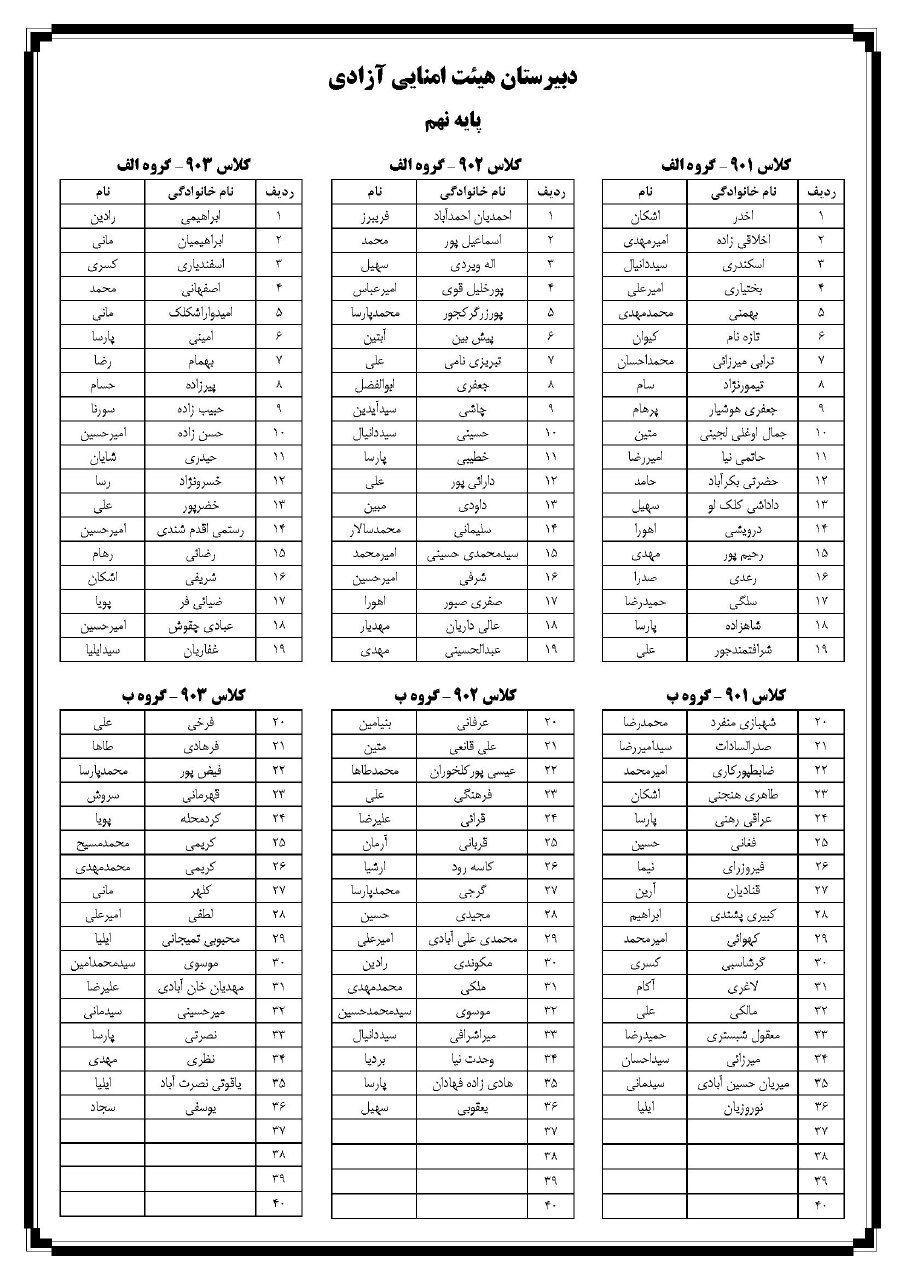 دبیرستان هیئت امنایی آزادی
پایه نهم
کلاس ۹۰۱ - گروه الف
ردیف نام خانوادگی نام
۱ اخدر اشکان
۲ اخلاقی زاده امیرمهدی
۳ اسکندری سیددانیال
۴ بختیاری امیرعلی
۵ بهمنی محمدمهدی
۶ تازه نام کیوان
۷ ترابی میرزائی محمداحسان
۸ تیمورنژاد سام
۹ جعفری هوشیار پرهام
۱۰ جمال اوغلی لجینی متین
۱۱ حاتمی نیا امیررضا
۱۲ حضرتی بکرآباد حامد
۱۳ داداشی کلک لو سهیل
۱۴ درویشی اهورا
۱۵ رحیم پور مهدی
۱۶ رعدی صدرا
۱۷ سلگی حمیدرضا
۱۸ شاهزاده پارسا
۱۹ شرافتمندجور علی
کلاس ۹۰۲ - گروه الف
ردیف نام خانوادگی نام
۱ احمدیان احمدآباد فریبرز
۲ اسماعیل پور محمد
۳ اله ویردی سهیل
۴ پورخلیل قوی امیرعباس
۵ پورزرگرکجور محمدپارسا
۶ پیش بین آبتین
۷ تبریزی نامی علی
۸ جعفری ابوالفضل
۹ چاشی سیدآیدین
۱۰ حسینی سیددانیال
۱۱ خطیبی پارسا
۱۲ دارائی پور علی
۱۳ داودی مبین
۱۴ سلیمانی محمدسالار
۱۵ سیدمحمدی حسینی امیرمحمد
۱۶ شرفی امیرحسین
۱۷ صفری صبور اهورا
۱۸ عالی داریان مهدیار
۱۹ عبدالحسینی مهدی
کلاس ۹۰۳ - گروه الف
ردیف نام خانوادگی نام
۱ ابراهیمی رادین
۲ ابراهیمیان مانی
۳ اسفندیاری کسری
۴ اصفهانی محمد
۵ امیدواراشکلک مانی
۶ امینی پارسا
۷ بهمام رضا
۸ پیرزاده حسام
۹ حبیب زاده سورنا
۱۰ حسن زاده امیرحسین
۱۱ حیدری شایان
۱۲ خسرونژاد رسا
۱۳ خضرپور علی
۱۴ رستمی اقدم شندی امیرحسین
۱۵ رضائی رهام
۱۶ شریفی اشکان
۱۷ ضیائی فر پویا
۱۸ عبادی چقوش امیرحسین
۱۹ غفاریان سیدایلیا
کلاس ۹۰۱ - گروه ب
۲۰ شهبازی منفرد محمدرضا
۲۱ صدرالسادات سیدامیررضا
۲۲ ضابطپورکاری امیرمحمد
۲۳ طاهری هنجنی اشکان
۲۴ عراقی رهنی پارسا
۲۵ فغانی حسین
۲۶ فیروزرای نیما
۲۷ قنادیان آرین
۲۸ کبیری پشتدی ابراهیم
۲۹ کهوائی امیرمحمد
۳۰ گرشاسبی کسری
۳۱ لاغری آکام
۳۲ مالکی علی
۳۳ معقول شبستری حمیدرضا
۳۴ میرزائی سیداحسان
۳۵ میریان حسین آبادی سیدمانی
۳۶ نوروزیان ایلیا
۳۷
۳۸
۳۹
۴۰
کلاس ۹۰۲ - گروه ب
۲۰ عرفانی بنیامین
۲۱ علی قانعی متین
۲۲ عیسی پورکلخوران محمدطاها
۲۳ فرهنگی علی
۲۴ قرائی علیرضا
۲۵ قربانی آرمان
۲۶ کاسه رود ارشیا
۲۷ گرجی محمدپارسا
۲۸ مجیدی حسین
۲۹ محمدی علی آبادی امیرعلی
۳۰ مکوندی رادین
۳۱ ملکی محمدمهدی
۳۲ موسوی سیدمحمدحسین
۳۳ میراشرافی سیددانیال
۳۴ وحدت نیا بردیا
۳۵ هادی زاده فهادان پارسا
۳۶ یعقوبی سهیل
۳۷
۳۸
۳۹
۴۰
کلاس ۹۰۳ - گروه ب
۲۰ فرخی علی
۲۱ فرهادی طاها
۲۲ فیض پور محمدپارسا
۲۳ قهرمانی سروش
۲۴ کردمحله پویا
۲۵ کریمی محمدمسیح
۲۶ کریمی محمدمهدی
۲۷ کلهر مانی
۲۸ لطفی امیرعلی
۲۹ محبوبی تمیجانی ایلیا
۳۰ موسوی سیدمحمدامین
۳۱ مهدیان خان آبادی علیرضا
۳۲ میرحسینی سیدمانی
۳۳ نصرتی پارسا
۳۴ نظری مهدی
۳۵ یاقوتی نصرت آباد ایلیا
۳۶ یوسفی سجاد
۳۷
۳۸
۳۹
۴۰